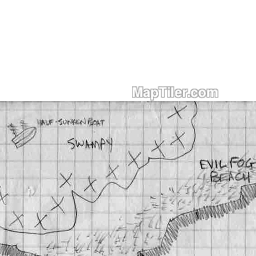 MapTiler.com
HALF-SUNKEN BOAT
SWAMPY
EVIL FOG
BEACH